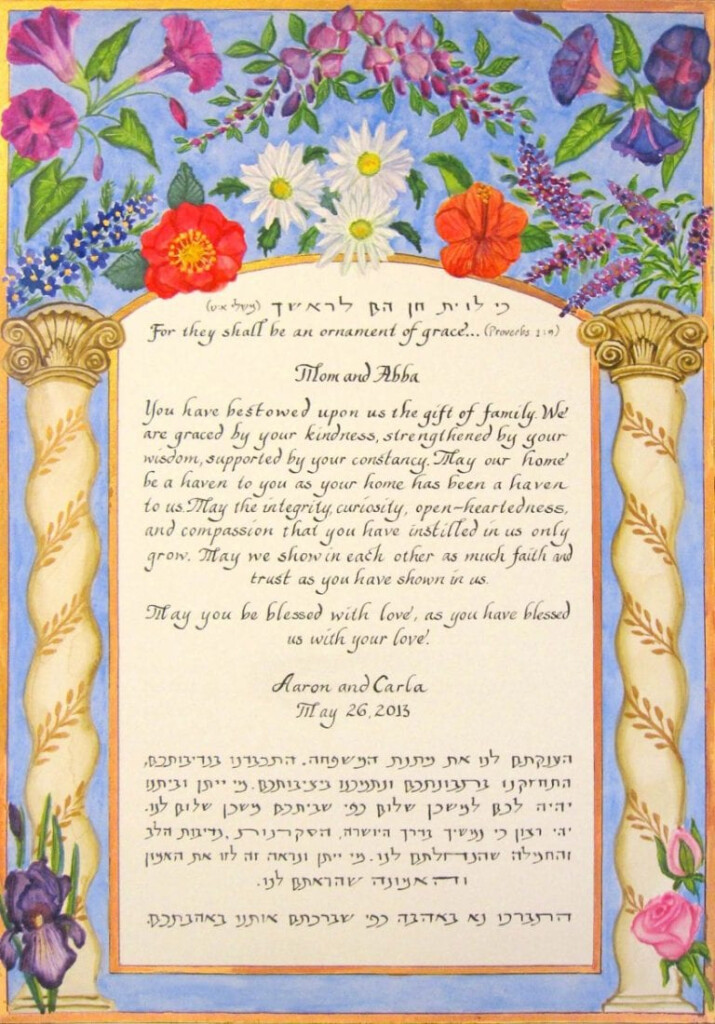 כי לוית חן הם לראשך (משלי א:ט)
For they shall be an ornament of grace... (Proverbs 1:9)
Mom and Abba
You have bestowed upon us the gift of family. We
are graced by your kindness, strengthened by your
wisdom, supported by your constancy. May our home
be a haven to you as your home has been a haven
to us. May the integrity, curiosity, open-heartedness,
and compassion that you have instilled in us only
grow. May we show in each other as much faith and
trust as you have shown in us.
May you be blessed with love, as you have blessed
us with your love.
Aaron and Carla
May 26, 2013
הענקתם לנו את מתנת המשפחה. התכבדנו בנדיבותכם,
התחזקנו בתבונתכם ונתמכנו ביציבותכם. מי ייתן וביתנו
יהיה לכם למשכן שלום כפי שביתכם משכן שלום לנו.
יהי רצון כי נמשיך בדרך היושרה, הסקרנות, נדיבות הלב
והחמלה שהנחלתם לנו. מי ייתן ונראה זה לזו את האמון
והאמונה שהראתם לנו.
התברכו נא באהבה כפי שברכתם אותנו באהבתכם.